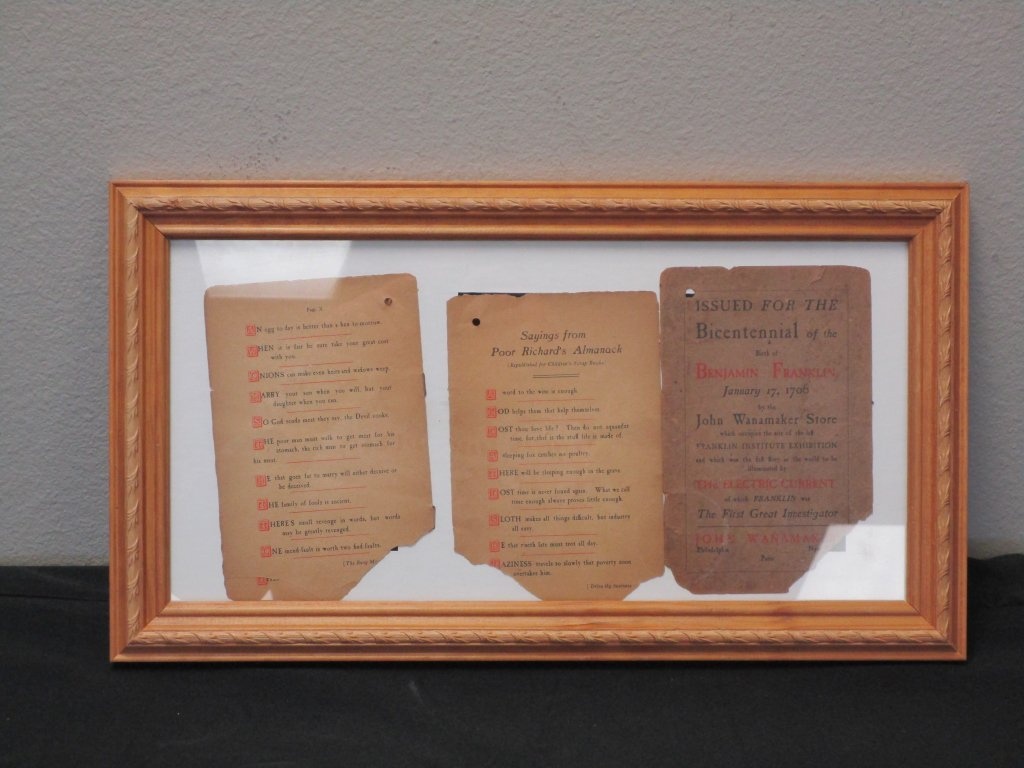 Page 3
AN egg to-day is better than a hen to-morrow.
WHEN it is fair be sure take your great coat
with you.
ONIONS can make even heirs and widows weep.
MARRY your son when you will, but your
daughter when you can.
SO God sends meat they say, the Devil cooks.
THE poor man must walk to get meat for his
stomach, the rich man to get stomach for
his meat.
HE that goes far to marry will either deceive or
be deceived.
THE family of fools is ancient.
THERE'S small revenge in words, but words
may be greatly revenged.
ONE mend-fault is worth two find-faults.
Sayings from
Poor Richard's Almanack
Republished for Children's Scrap Books
A word to the wise is enough.
GOD helps them that help themselves.
DOST thou love life? Then do not squander
time, for that is the stuff life is made of.
sleeping fox catches no poultry.
THERE will be sleeping enough in the grave.
LOST time is never found again. What we call
time enough always proves little enough.
SLOTH makes all things difficult, but industry
all easy.
HE that riseth late must trot all day.
LAZINESS travels so slowly that poverty soon
overtakes him.
ISSUED FOR THE
Bicentennial of the
Birth of
BENJAMIN FRANKLIN,
January 17, 1706
by the
John Wanamaker Store
which occupies the site of the
FRANKLIN INSTITUTE EXHIBITION
and which was the first Store in the world to be
illuminated by
THE ELECTRIC CURRENT
of which FRANKLIN was
The First Great Investigator
JOHN WANAMAKER
Philadelphia New
Paris